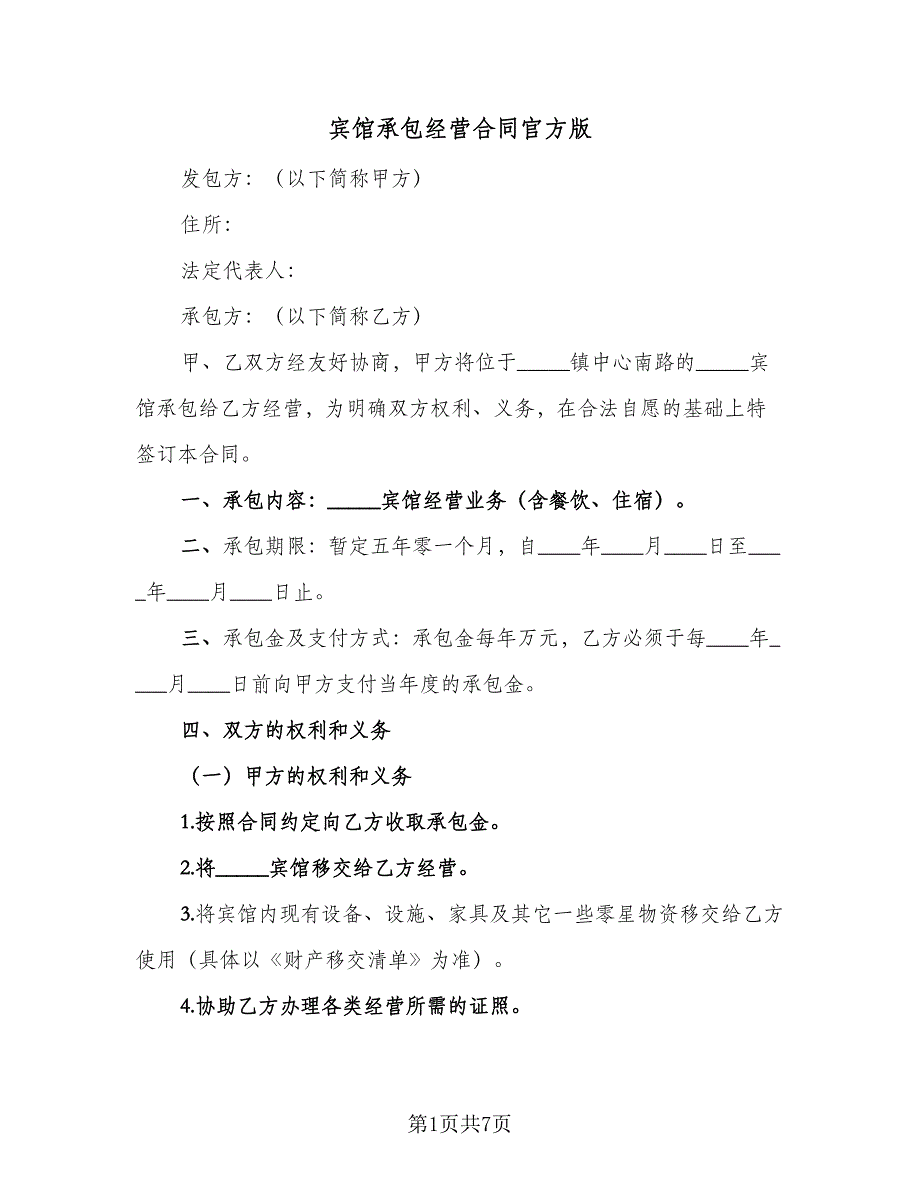 宾馆承包经营合同官方版
发包方：（以下简称甲方）
住所：
法定代表人：
承包方：（以下简称乙方）
甲、乙双方经友好协商，甲方将位于_____镇中心南路的_____宾
馆承包给乙方经营，为明确双方权利、义务，在合法自愿的基础上特
签订本合同。
一、承包内容：_____宾馆经营业务（含餐饮、住宿）。
二、承包期限：暂定五年零一个月，自____年____月____日至___
_年____月____日止。
三、承包金及支付方式：承包金每年万元，乙方必须于每____年_
___月____日前向甲方支付当年度的承包金。
四、双方的权利和义务
（一）甲方的权利和义务
1.按照合同约定向乙方收取承包金。
2.将_____宾馆移交给乙方经营。
3.将宾馆内现有设备、设施、家具及其它一些零星物资移交给乙方
使用（具体以《财产移交清单》为准）。
4.协助乙方办理各类经营所需的证照。
第1页共7页